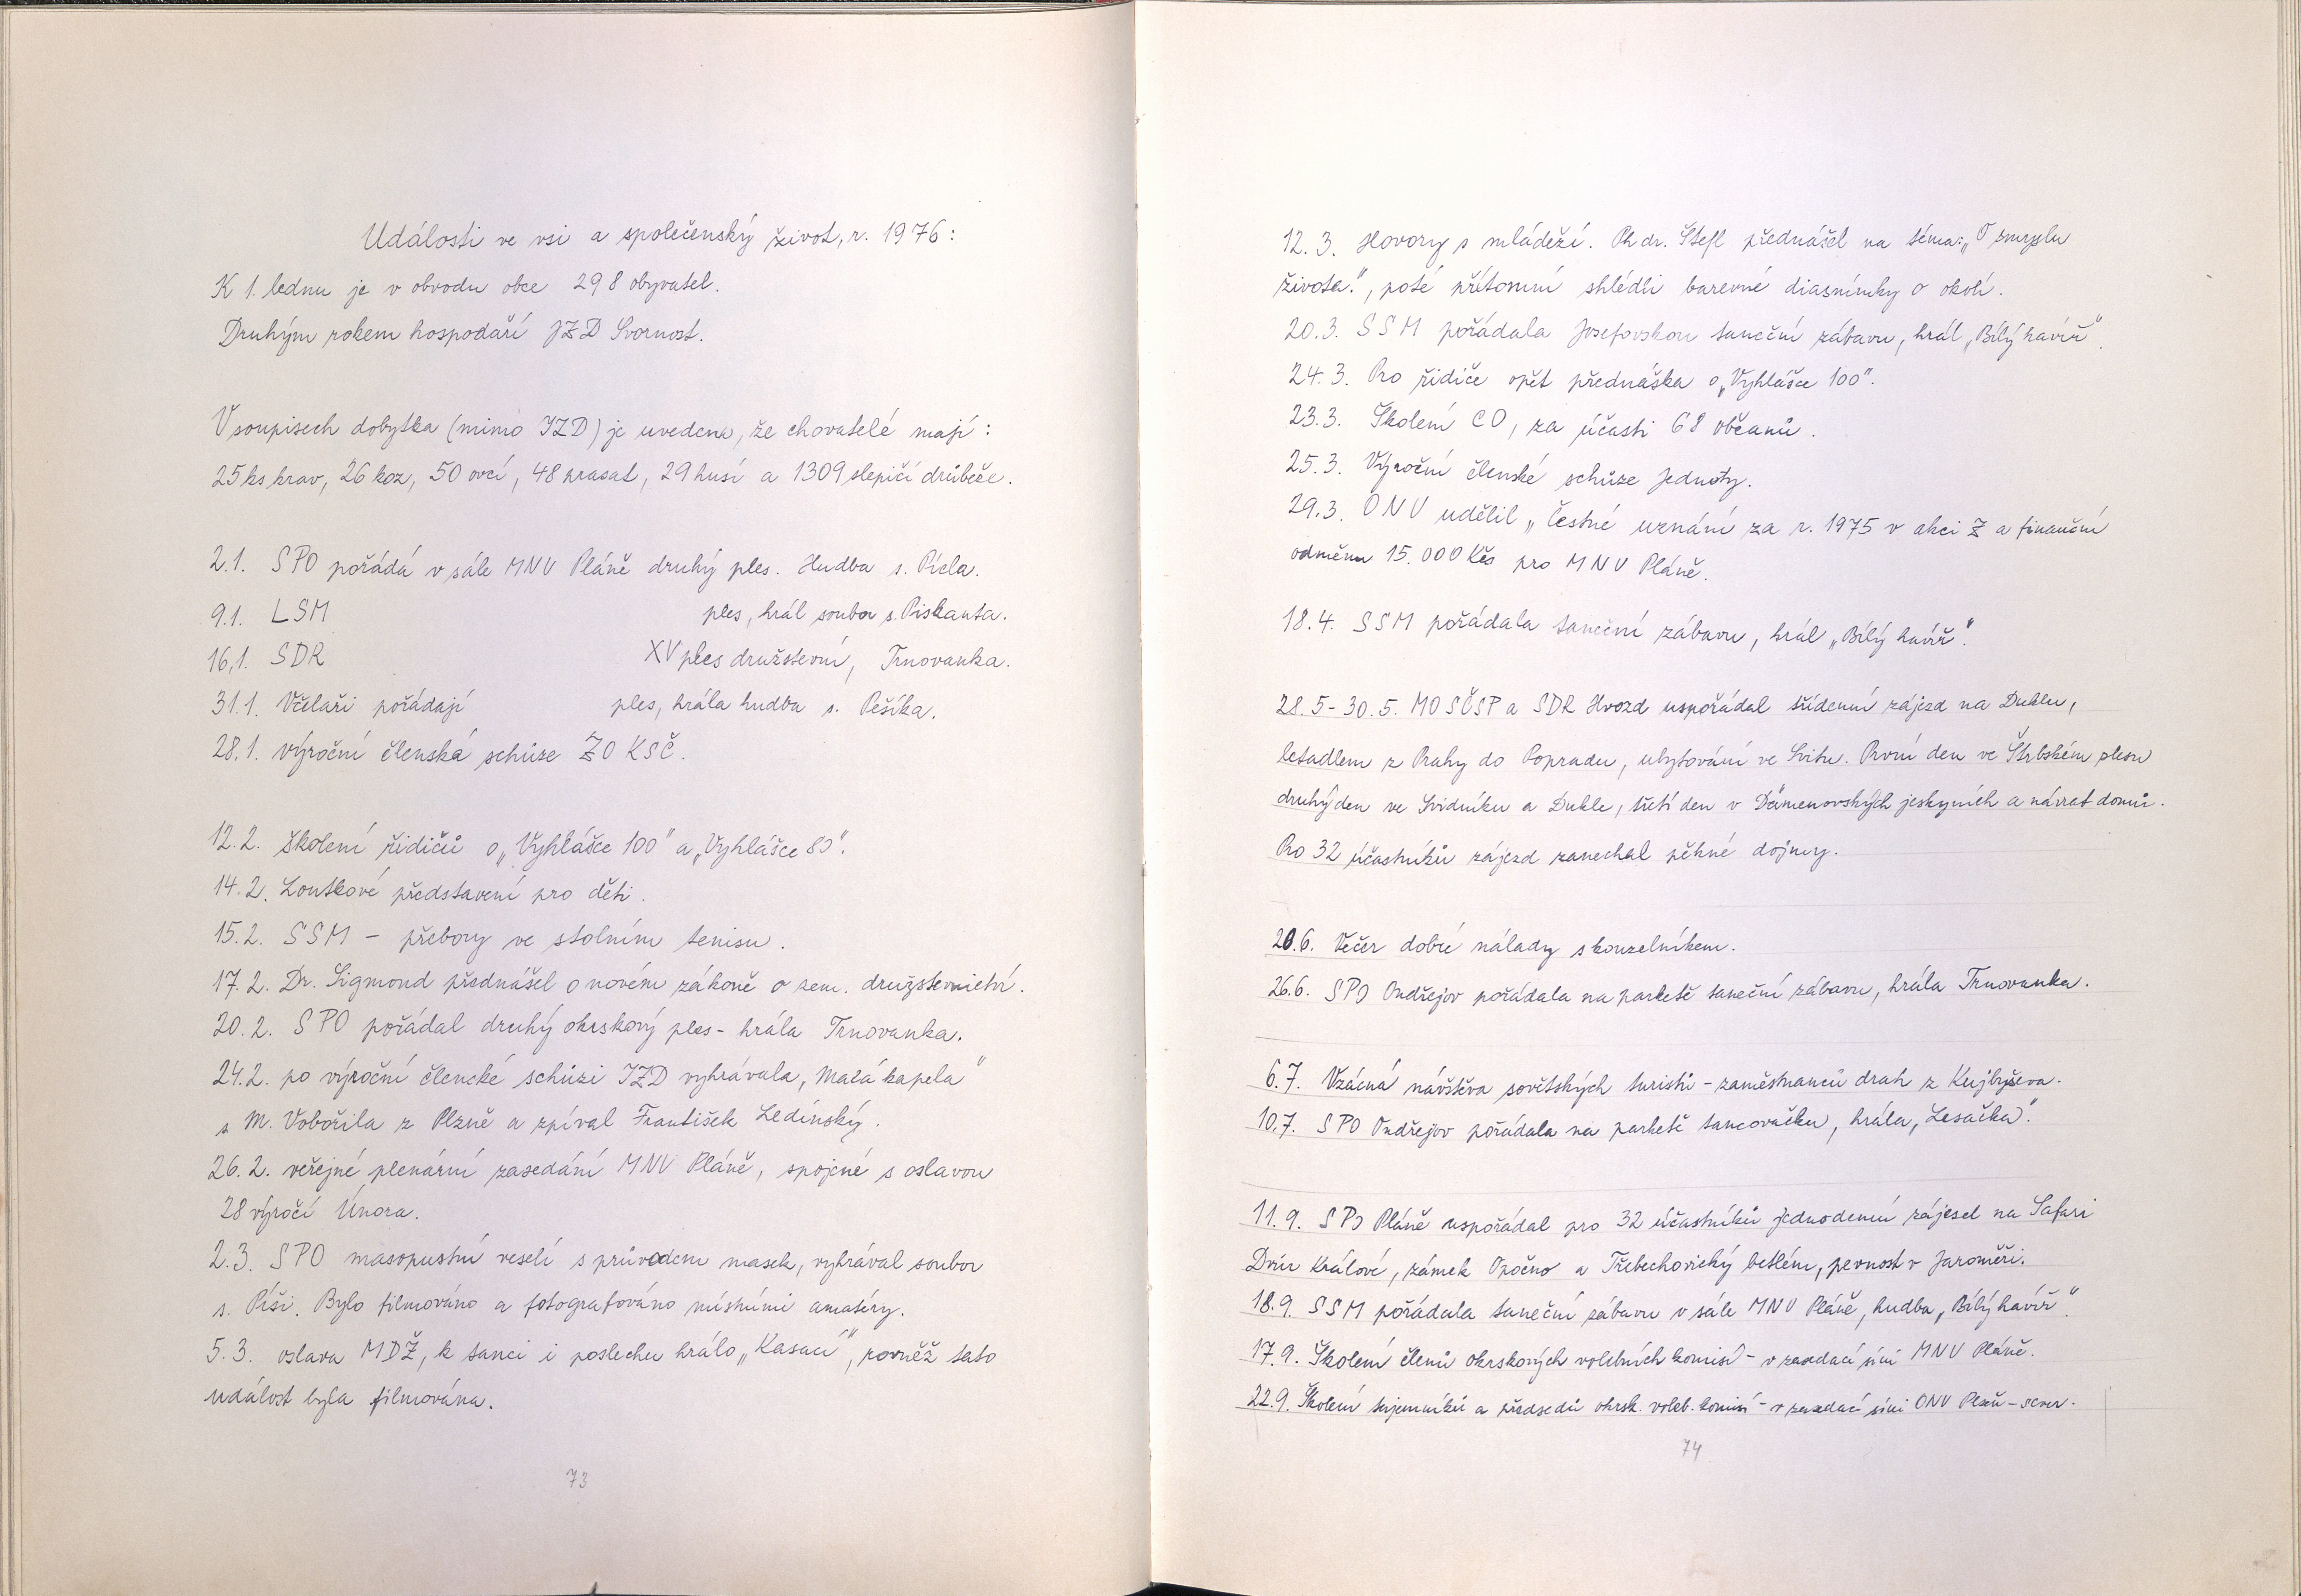 Události ve vsi a společenský život, r. 1976:
K 1. lednu je v obvodu obce 298 obyvatel.
Druhým rokem hospodaří JZD Svornost.
V soupisech dobytka (mimo JZD) je uvedeno, že chovatelé mají:
25 ks krav, 26 koz, 50 ovcí, 48 prasat, 29 husí a 1309 slepičí drůbeže.
2.1. SPO pořádá v sále MNV Pláně druhý ples. Hudba s. Pícla.
9.1. LSM ples, hrál soubor s. Piskanta.
16.1. SDR XV ples družstevní, Trnovanka.
31.1. Včelaři pořádají ples, hrála hudba s. Pešíka.
28.1. výroční členská schůze ZO KSČ.
12.2. školení řidičů o „Vyhlášce 100" a „Vyhlášce 80".
14.2. Loutkové představení pro děti.
15.2. SSM – přebory ve stolním tenisu.
17.2. Dr. Sigmond přednášel o novém zákoně o zem. družstevnictví.
20.2. SPO pořádal druhý okrskový ples - hrála Trnovanka.
24.2. po výroční členské schůzi JZD vyhrávala „Malá kapela"
s M. Vobořila z Plzně a zpíval František Ledínský.
26.2. veřejné plenární zasedání MNV Pláně, spojené s oslavou
28 výročí Února.
2.3. SPO masopustní veselí s průvodem masek, vyhrával soubor
s. Píši. Bylo filmováno a fotografováno místními amatéry.
5.3. oslava MDŽ, k tanci i poslechu hrálo „Kasaci", rovněž tato
událost byla filmována.
73
12.3. Hovory s mládeží. Ph dr. Štefl přednášel na téma: „O smyslu
života", poté přítomní shlédli barevné diasnímky o okolí.
20.3. SSM pořádala Josefovskou taneční zábavu, hrál „Bílý havíř".
24.3. Pro řidiče opět přednáška o „Vyhlášce 100".
23.3. Školení CO, za účasti 68 občanů.
25.3. Výroční členské schůze Jednoty.
29.3. ONV udělil „Čestné uznání za r. 1975 v akci Z a finanční
odměnu 15.000 Kčs pro MNV Pláně.
18.4. SSM pořádala taneční zábavu, hrál „Bílý havíř".
28.5-30.5. MO SČSP a SDR Hvozd uspořádal třídenní zájezd na Duklu,
letadlem z Prahy do Popradu, ubytování ve Svitu. První den ve Štrbském plesu
druhý den ve Svidníku a Dukle, třetí den v Dämenovských jeskyních a návrat domů.
Pro 32 účastníků zájezd zanechal pěkné dojmy.
20.6. Večer dobré nálady s kouzelníkem.
26.6. SPO Ondřejov pořádala na parketě taneční zábavu, hrála Trnovanka.
6.7. Vzácná návštěva sovětských turistů - zaměstnanců drah z Kujbyševa.
10.7. SPO Ondřejov pořádala na parketě tancovačku, hrála „Lesačka".
11.9. SPO Pláně uspořádal pro 32 účastníků jednodenní zájezd na Safari
Dvůr Králové, zámek Opočno a Třebechovický betlém, pevnost v Jaroměři.
18.9. SSM pořádala taneční zábavu v sále MNV Pláně, hudba „Bílý havíř".
17.9. Školení členů okrskových volebních komisí - v zasedací síni MNV Pláně.
22.9. Školení tajemníků a předsedů okrsk. voleb. komisí - v zasedací síni ONV Plzeň - sever.
74